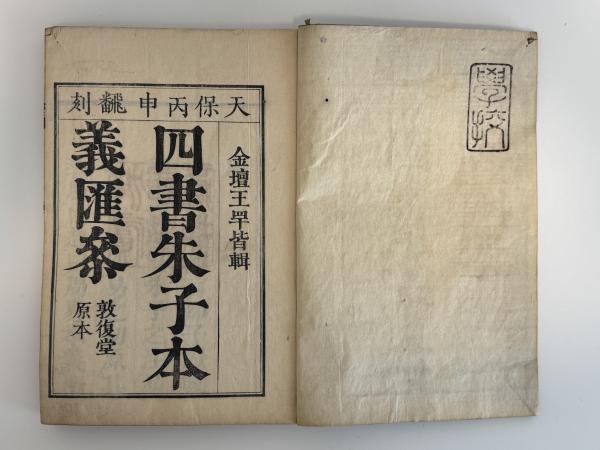 天保丙申翻刻
金壇王罕皆輯
四書朱子本
義匯叅
敦復堂
原本
學校